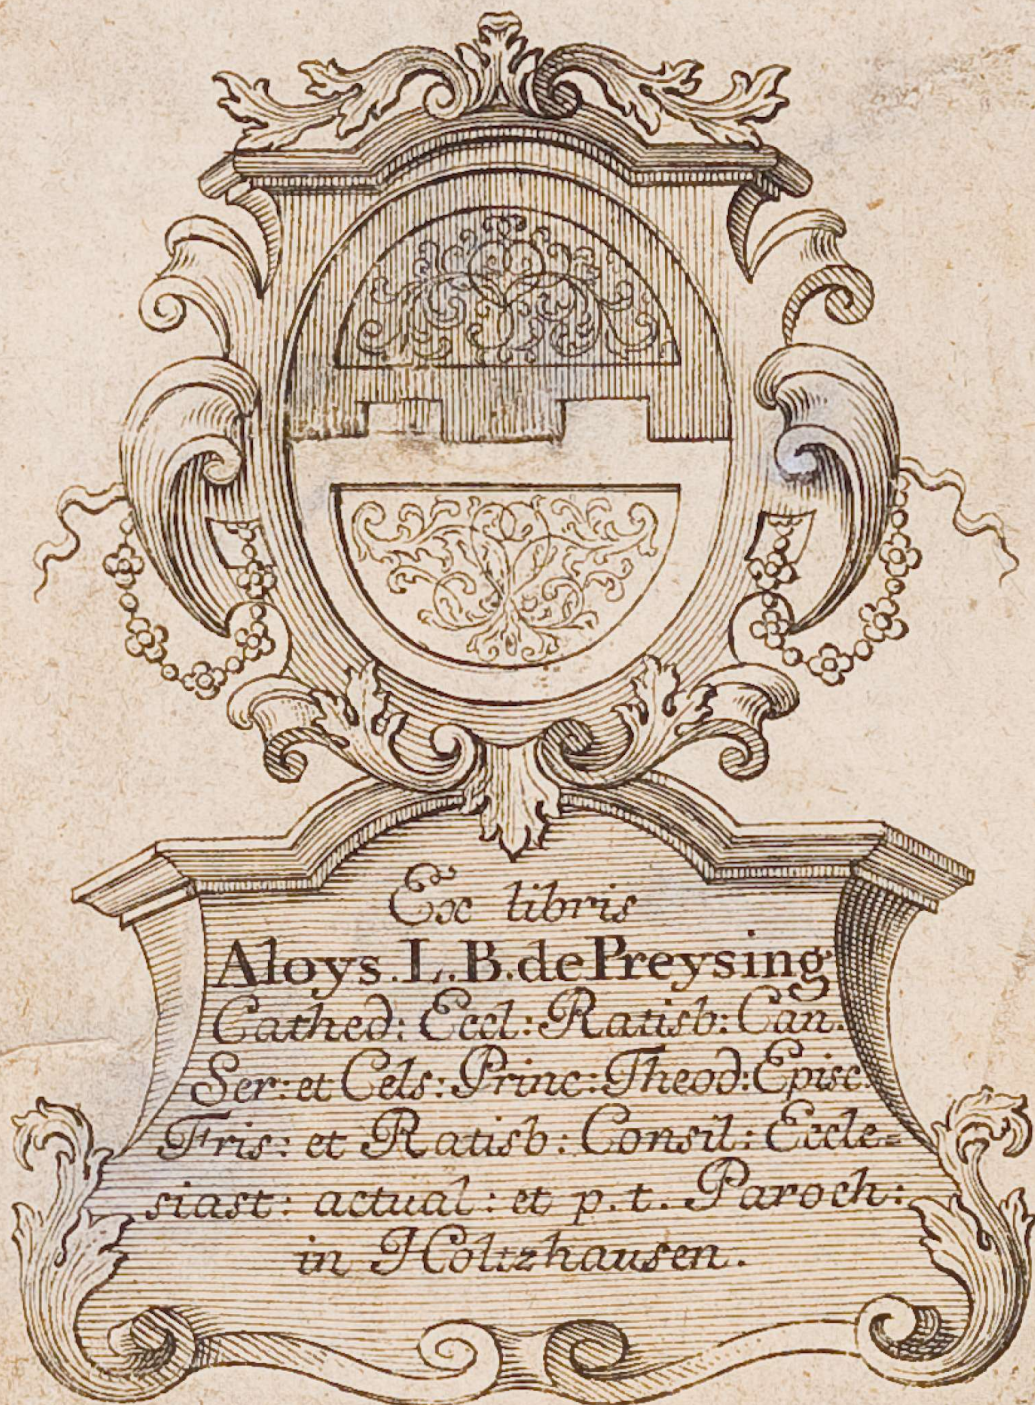 Ex libris
Aloys. L. B. de Preysing
Cathed: Eccl: Ratisb: Can.
Ser: et Cels: Princ: Theod: Episc:
Fris: et Ratisb: Consil: Eccle=
siast: actual: et p. t. Paroch:
in Holtzhausen.